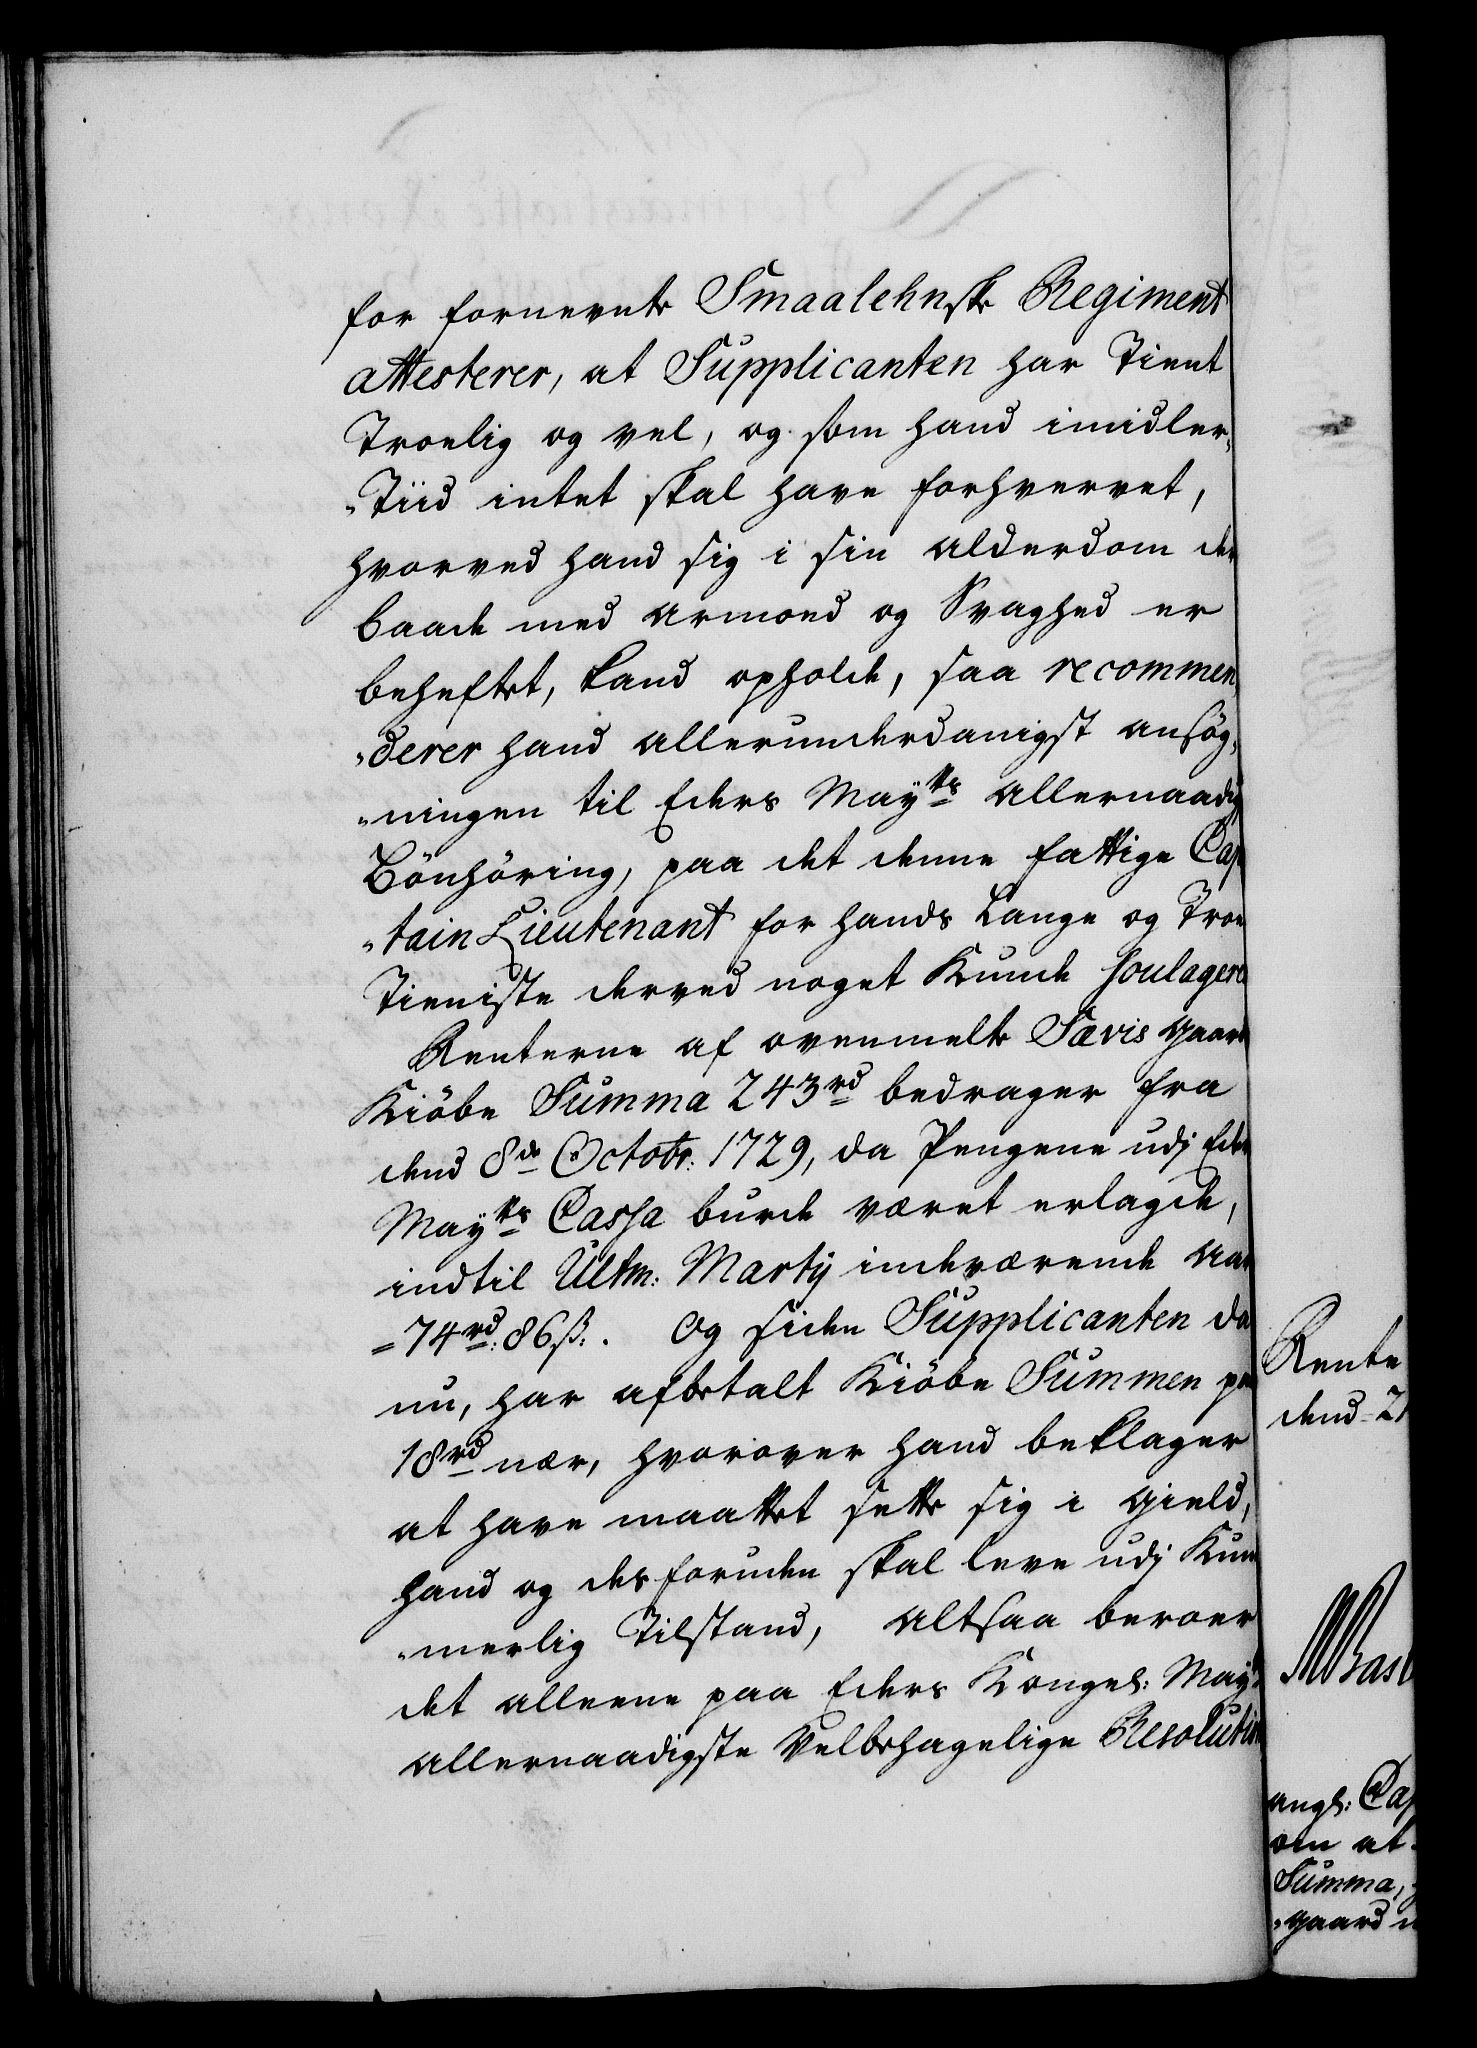 for fornevnte Smaalehnske Regiment
attesterer, at Supplicanten har Tient
Troelig og vel, og som hand imidler„
„Tiid intet skal have forhvervet,
hvorved hand sig i sin Alderdom der
baade med Armoed og Svaghed er
beheftet, kand opholde, saa recommen„
„derer hand allerunderdanigst ansøg„
„ningen til Eders Mayts allernaadig
Bönhöring, paa det denne fattige Cap
„tain Lieutenant for hands Lange og Troe
Tieniste derved noget Kunde soulagere
Renterne af ovenmelte Sævis gaard
Kiöbe Summa 243rd bedrager fra
dend 8de Octobr: 1729, da Pengene udj Eder
Mayts Cassa burde været erlagde,
indtil Ultm: Martij indeværende Aar
=74rd: 86ß:. Og siden Supplicanten da
nu, har afbetalt Kiöbe Summen paa
18rd nær, hvorover hand beklager
at have maattet sette sig i gield,
hand og desforuden skal leve udj Kum
„merlig Tilstand, Altsaa beroer
det alleene paa Eders Kongel: Mayts
allernaadigste Velbehagelige Resolution
Rente
dend 21
angl: Cap
om at
Summa,
„gaard